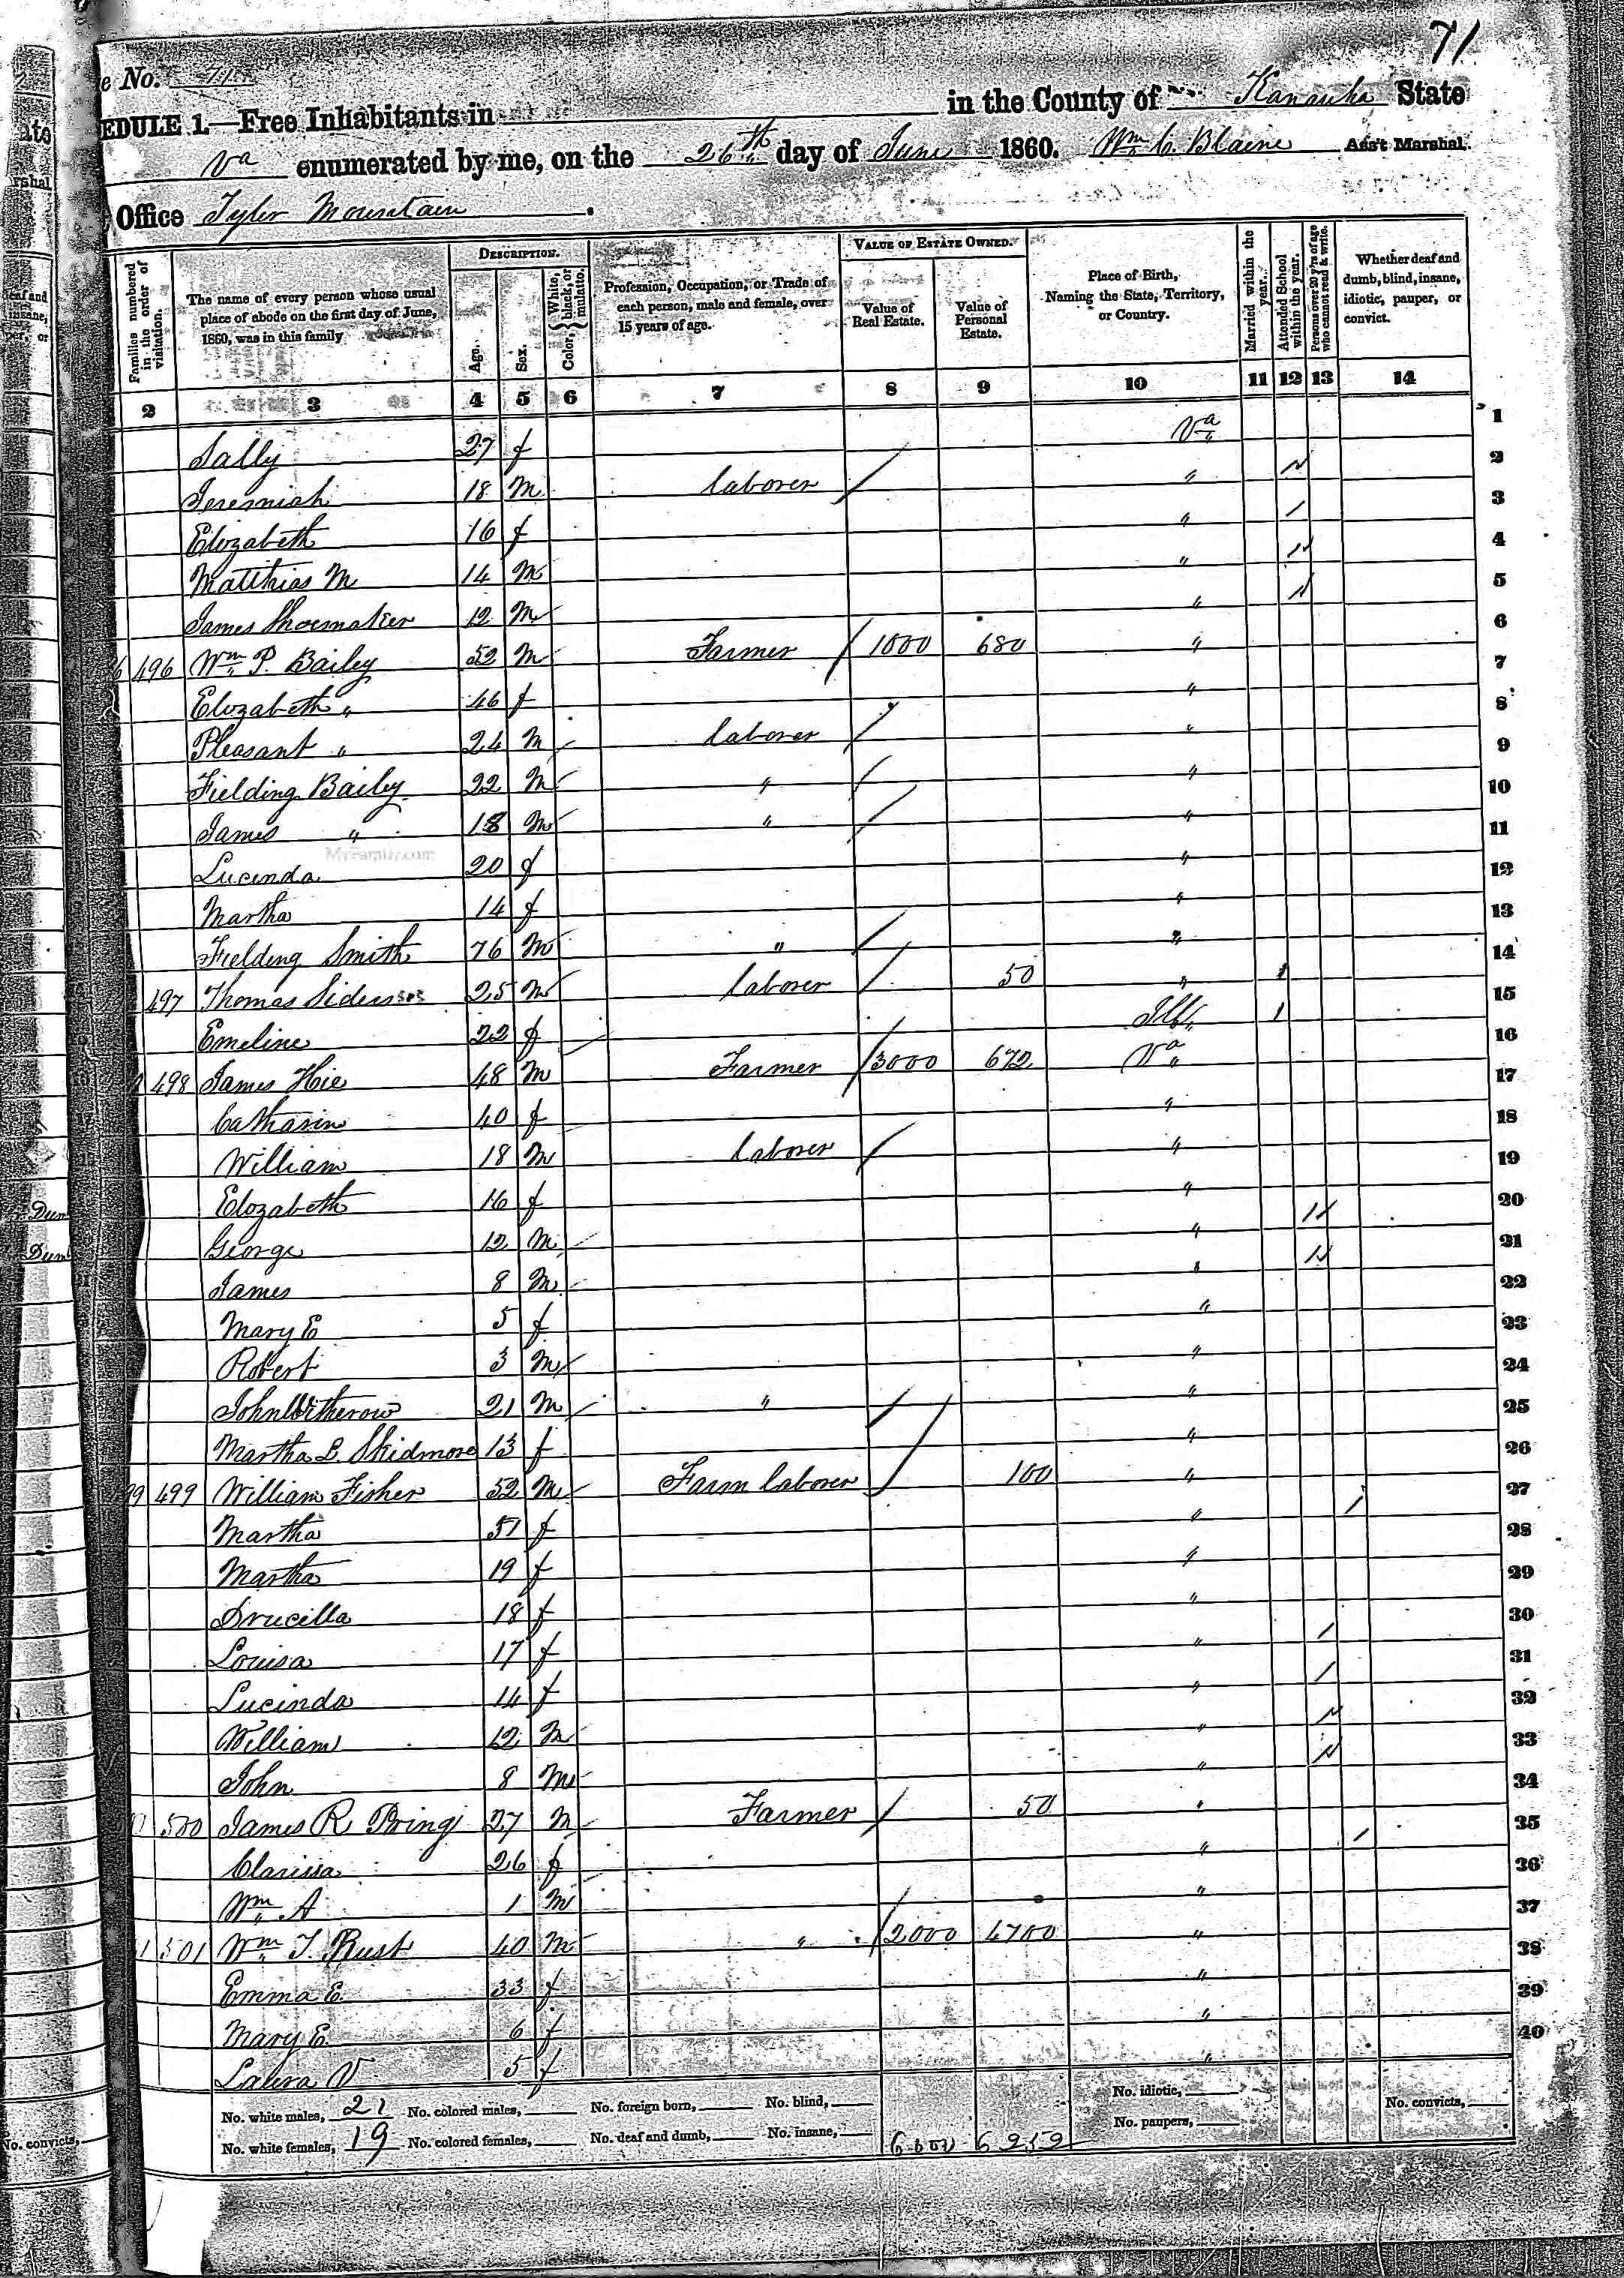 71
e No. 71
EDULE 1.—Free Inhabitants in in the County of Kanawha State
Va enumerated by me, on the 26th day of June 1860. Wm C. Blaine Ass't Marshal.
Office Tyler Mountain.
Families numbered in the order of visitation.
The name of every person whose usual place of abode on the first day of June, 1860, was in this family
DESCRIPTION.
Age. Sex. Color, { White, black, or mulatto.
Profession, Occupation, or Trade of each person, male and female, over 15 years of age.
VALUE OF ESTATE OWNED.
Value of Real Estate. Value of Personal Estate.
Place of Birth, Naming the State, Territory, or Country.
Married within the year.
Attended School within the year.
Persons over 20 y'rs of age who cannot read & write.
Whether deaf and dumb, blind, insane, idiotic, pauper, or convict.
2 3 4 5 6 7 8 9 10 11 12 13 14
Sally 27 f Va 1
Jeremiah 18 M laborer / " 2
Elizabeth 16 f " / 3
Matthias M 14 M " 4
James Shoemaker 12 M " 5
6 496 Wm P. Baily 52 M Farmer / 1000 680 " 6
Elizabeth " 46 f " 7
Pleasant " 24 M laborer / " 8
Fielding Baily 22 M " / " 9
James " 18 M " / " 10
MyFamily.com
Lucinda 20 f " 11
Martha 14 f " 12
Fielding Smith 76 M " / " 13
497 Thomas Siders 25 M laborer / 50 " 1 14
Emeline 22 f Ills. 1 15
498 James Hie 48 M Farmer / 3000 672 Va 16
Catharin 40 f " 17
William 18 M laborer / " 18
Elizabeth 16 f " 19
George 12 M " 20
James 8 M " 21
Mary E 5 f " 22
Robert 3 M " 23
John Witherow 21 M " / " 24
Martha L. Skidmore 13 f " 25
9 499 William Fisher 52 M Farm laborer / 100 " 26
Martha 51 f " / 27
Martha 19 f " 28
Drucilla 18 f " 29
Louisa 17 f " / 30
Lucinda 14 f " / 31
William 12 M " 32
John 8 M " 33
500 James R Pring 27 M Farmer / 50 " 34
Clarissa 26 f " / 35
Wm A 1 M " 36
1 501 Wm T. Rust 40 M " / 2000 4700 " 37
Emma E. 33 f " 38
Mary E. 6 f " 39
Laura V 5 f " 40
No. white males, 21 No. colored males, No. foreign born, No. blind, No. idiotic, No. convicts,
No. white females, 19 No. colored females, No. deaf and dumb, No. insane, 6000 6252 No. paupers,
No. convicts,